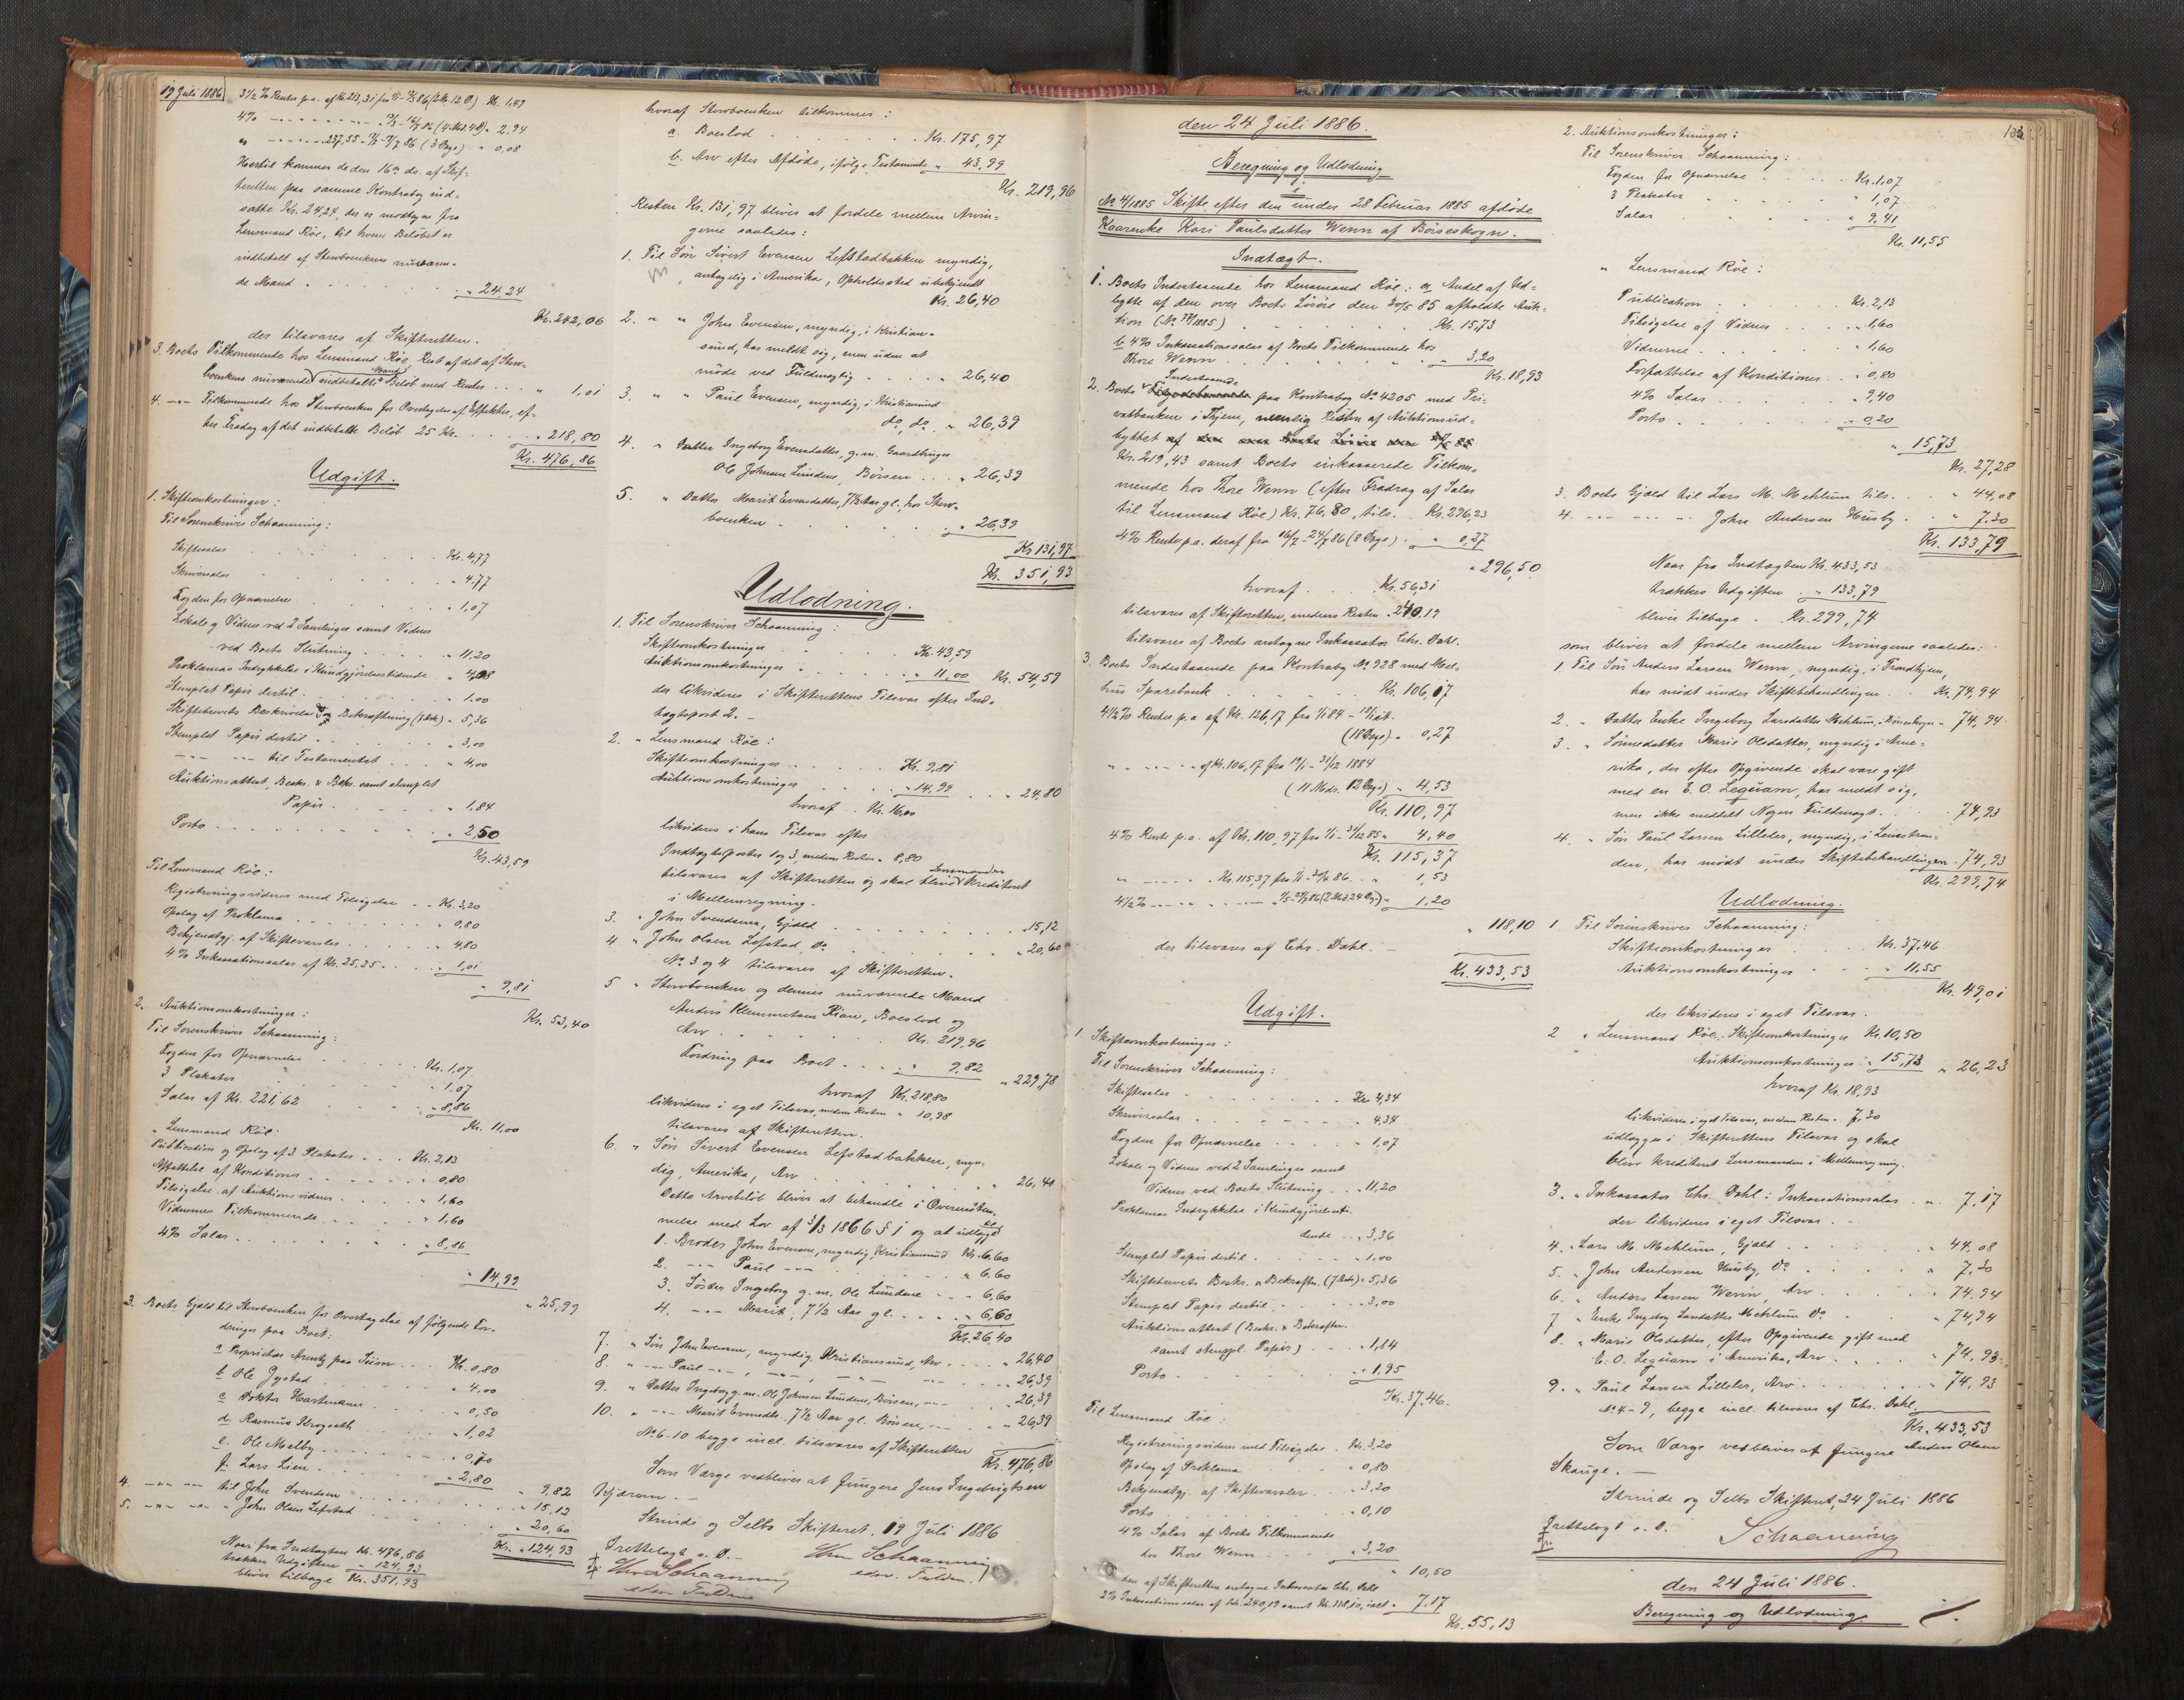 19 Juli 1886
3 1/2 % Rente p.a. af Kr. 213,31 fra 1/1 - 86 (2 M. 12 D.) Kr. 1,49
4% 2,94
" 237,55 - 86 (3 Dage) " 0,08
Hertil kommer de den 16de ds. af Skif-
teretten paa samme Kontrabog ind-
satte Kr. 24,24, der er modtagne fra
Lensmand Röe, til hvem Beløbet er
indbetalt af Stervboenkens nuværen-
de Mand . . . " 24,24
Kr. 242,06
der tilsvares af Skifteretten.
3. Boets Tilkommende hos Lensmand Röe, Rest af det af Sterv-
boenkens nuværende Mand indbetalte Beløb med Renter . . . " 1,01
4. -"- Tilkommende hos Stervboenken for Overtagelse af Effekter, ef-
ter Fradrag af det indbetalte Beløb 25 Kr. . . " 218,80
Kr. 476,86
Udgift.
1. Skifteomkostninger:
Til Sorenskriver Schaanning:
Skiftesalær . . . Kr. 4,77
Skriversalær . . . " 4,77
Fogden for Opnævnelse . . . " 1,07
Lokale og Vidner ved 2 Samlinger samt Vidner
ved Boets Slutning . . . " 11,20
Proklamas Indrykkelse i Kundgjørelsestidende " 4,08
Stemplet Papir dertil . . . " 1,00
Skiftebrevets Beskrivelse og Bekræftning (7 Ark) " 5,36
Stemplet Papir dertil . . . " 3,00
-"- -"- til Testamentet . . . " 4,00
Auktionsattest, Beskr. & Bekr. samt stemplet
Papir . . . " 1,84
Porto . . . " 2,50
Kr. 43,59
Til Lensmand Röe:
Registreringsvidner med Tilsigelse . . Kr. 3,20
Opslag af Proklama . . . " 0,80
Bekjendtgj. af Skiftevarsler . . . " 4,80
4% Inkassationssalær af Kr. 25,25 . . . " 1,01
" 9,81
Kr. 53,40
2. Auktionsomkostninger:
Til Sorenskriver Schaanning:
Fogden for Opnævnelse . . . Kr. 1,07
3 Plakater . . . " 1,07
Salær af Kr. 221,62 . . . " 8,86
Kr. 11,00
" Lensmand Röe:
Publication og Opslag af 3 Plakater . . . Kr. 2,13
Affattelse af Konditioner . . . " 0,80
Tilsigelse af Auktionsvidner . . . " 1,60
Vidnernes Tilkommende . . . " 1,60
4% Salær . . . " 8,86
" 14,99
" 25,99
3. Boets Gjæld til Stervboenken for Overtagelse af følgende For-
dringer paa Boet:
a. Proprietær Arentz paa . . . Kr. 0,80
b. Ole Jystad . . . " 4,00
c. Doktor Hartmann . . . " 0,50
d. Rasmus Krogseth . . . " 1,02
e. Ole Melby . . . " 0,70
f. Lars Lien . . . " 2,80
" 9,82
4. -"- -"- til John Svendsen . . . " 15,12
5. -"- -"- " John Olsen Lefstad . . . " 20,60
Kr. 124,93
Naar fra Indtægten Kr. 476,86
trækkes Udgiften " 124,93
bliver tilbage Kr. 351,93
hvoraf Stervboenken tilkommer:
a. Boeslod . . . Kr. 175,97
b. Arv efter Afdøde, ifølge Testamente " 43,99
Kr. 219,96
Resten Kr. 131,97 bliver at fordele mellem Arvin-
gerne saaledes:
1. Til Søn Sivert Evensen Lefstadbakken myndig,
antagelig i Amerika, Opholdssted ubekjendt
Kr. 26,40
2. " " John Evensen, myndig, i Kristian-
sund, har meldt sig, men uden at
møde ved Fuldmægtig . . . " 26,40
3. " " Paul Evensen, myndig, i Kristiansund
do. do. " 26,39
4. " Datter Ingeborg Evensdatter, g. m. Gaardbruger
Ole Johnsen Lundene, Børsen . . . " 26,39
5. " Datter Marit Evensdatter, 7 1/2 Aar gl., hos Sterv-
boenken . . . " 26,39
Kr. 131,97
Kr. 351,93
Udlodning.
1. Til Sorenskriver Schaanning:
Skifteomkostninger . . . Kr. 43,59
Auktionsomkostninger . . . " 11,00 Kr. 54,59
der likvideres i Skifterettens Tilsvar efter Ind-
tægtspost 2. -
2. " Lensmand Röe:
Skifteomkostninger . . . Kr. 9,81
Auktionsomkostninger . . . " 14,99 . . " 24,80
hvoraf . . Kr. 16,00
likvideres i hans Tilsvar efter
Indtægtsposter 1 og 3, medens Resten " 8,80
tilsvares af Skifteretten og skal blive Lensmanden krediteret
i Mellemregning.
3. " John Svendsen, Gjæld . . . " 15,12
4 " John Olsen Lefstad, Do . . . " 20,60
No. 3 og 4 tilsvares af Skifteretten.
5 " Stervboenken og dennes nuværende Mand
Anders Klemmetsen Rian, Boeslod og
Arv . . . Kr. 219,96
Fordring paa Boet . . . " 9,82
" 229,78
hvoraf Kr. 218,80
likvideres i eget Tilsvar, medens Resten " 10,98
tilsvares af Skifteretten.
6. " Søn Sivert Evensen Lefstadbakken, myn-
dig, Amerika, Arv . . . " 26,40
Dette Arvebeløb bliver at behandle i Overensstem-
melse med Lov af 3/3 1866 § 1 og at udlægge til
1. Broder John Evensen, myndig, Kristiansund Kr. 6,60
2. -"- Paul -"- . . . " 6,60
3. Søster Ingeborg g. m. Ole Lundene . . " 6,60
4. -"- Marit, 7 1/2 Aar gl. . . . " 6,60
Kr. 26,40
7. " Søn John Evensen, myndig, Kristiansund, Arv . . " 26,40
8. " -"- Paul -"-, -"-, -"- -"- . . " 26,39
9. " Datter Ingeborg g. m. Ole Johnsen Lundene, Børsen, -"- . " 26,39
10. " -"- Marit Evensdtr., 7 1/2 Aar gl. Børsen, -"- . . " 26,39
No 6-10 begge incl. tilsvares af Skifteretten
Kr. 476,86
Som Værge vedbliver at fungere Jens Ingebrigtsen
Kjæram. -
Strinde og Selbo Skifteret, 19 Juli 1886
Schaanning
edsv. Fuldm.
Fremlagt s. D. -
Schaanning
edsv. Fuldm.
den 24 Juli 1886.
Beregning og Udlodning
i
No 4/1885 Skifte efter den under 28 Februar 1885 afdøde
Kaarenke Kari Paulsdatter Wenn af Börseskogn.
Indtægt.
1. Boets Indestaaende hos Lensmand Röe: a. Andel af Ud-
bytte af den over Boets Løsøre den 30/5 85 afholdte Auk-
tion (No /1885) . . . Kr. 15,73
b. 4% Inkassationssalær af Boets Tilkommende hos
Thore Wenn . . . " 3,20
Kr. 18,93
2. Boets Indestaaende paa Kontrabog No 4205 med Pri-
vatbanken i Thjem, nemlig Resten af Auktionsud-
byttet
Kr. 219,43 samt Boets inkasserede Tilkom-
mende hos Thore Wenn (efter Fradrag af Salær
til Lensmand Röe) Kr. 76,80, tils. . Kr. 296,23
4% Rente p.a. deraf fra 16/7 - 24/7 86 (8 Dage) . " 0,27
" 296,50
hvoraf . . . Kr. 56,31
tilsvares af Skifteretten, medens Resten " 240,19
tilsvares af Boets antagne Inkassator Chr. Dahl.
3. Boets Indestaaende paa Kontrabog No 928 med Mel-
hus Sparebank . . . Kr. 106,17
4 1/2 % Renter p.a. af Kr. 126,17 fra 1/1 84 - 19/1 s.A.
(18 Dage) . " 0,27
" -"- af Kr. 106,17 fra 19/1 - 31/12 1884
(11 Mdr. 12 Dage) " 4,53
Kr. 110,97
4% Rente p.a. af Kr. 110,97 fra 1/1 - 31/12 85 " 4,40
Kr. 115,37
" -"- Kr. 115,37 fra 1/1 - 86 . . " 1,53
4 1/2 % -"- 86 (2 Md. 24 Dge) " 1,20
" 118,10
der tilsvares af Chr. Dahl. -
Kr. 433,53
Udgift.
1. Skifteomkostninger:
Til Sorenskriver Schaanning:
Skiftesalær . . . Kr. 4,34
Skriversalær . . . " 4,34
Fogden for Opnævnelse . . . " 1,07
Lokale og Vidner ved 2 Samlinger samt
Vidner ved Boets Slutning . . . " 11,20
Proklamas Indrykkelse i Kundgjørelsesti-
dende . . " 3,36
Stemplet Papir dertil . . . " 1,00
Skiftebrevets Beskr. & Bekræftn. (7 Ark) " 5,36
Stemplet Papir dertil . . . " 3,00
Auktionsattest (Beskr. & Bekræftn.
samt stempl. Papir) . . . " 1,84
Porto . . . " 1,95
Kr. 37,46.
Til Lensmand Röe:
Registreringsvidner med Tilsigelse . Kr. 3,20
Opslag af Proklama . . . " 0,80
Bekjendtgj. af Skiftevarsler . . " 3,20
Porto . . . " 0,10
4% Salær af Boets Tilkommende
hos Thore Wenn . . . " 3,20
" 10,50
" den af Skifteretten antagne Inkassator Chr. Dahl
2% Inkassationssalær af Kr. 240,19 samt Kr. 118,10, ialt " 7.17
Kr. 55,13
133
2. Auktionsomkostninger:
Til Sorenskriver Schaanning:
Fogden for Opnævnelse . . . Kr. 1,07
3 Plakater . . . " 1,07
Salær . . . " 9,41
Kr. 11,55
" Lensmand Röe:
Publication . . . Kr. 2,13
Tilsigelse af Vidner . . . " 1,60
Vidnerne . . . " 1,60
Forfattelse af Konditioner . . " 0,80
4% Salær . . . " 9,40
Porto . . . " 0,20
" 15,73
Kr. 27,28
3. Boets Gjæld til Lars M. Mehlum tils. . . " 44,08
4. -"- -"- -"- John Andersen Husby . . " 7,30
Kr. 133,79
Naar fra Indtægten Kr. 433,53
trækkes Udgiften . " 133,79
bliver tilbage . Kr. 299,74
som bliver at fordele mellem Arvingerne saaledes:
1 Til Søn Anders Larsen Wenn, myndig, i Trondhjem,
har mødt under Skiftebehandlingen . . Kr. 74,94
2. " Datter Enke Ingeborg Larsdatter Mehlum, i Börseskogn " 74,94
3. " Sønnedatter Marie Olsdatter, myndig i Ame-
rika, der efter Opgivende skal være gift
med en E. O. Leguam, har meldt sig,
men ikke meddelt Nogen Fuldmagt . . " 74,93
4. " Søn Paul Larsen Lilleler, myndig, i Leinstran-
den, har mødt under Skiftebehandlingen " 74,93
Kr. 299,74
Udlodning.
1 Til Sorenskriver Schaanning:
Skifteomkostninger . . . Kr. 37,46
Auktionsomkostninger . . . " 11,55
Kr. 49,01
der likvideres i eget Tilsvar.
2 " Lensmand Röe, Skifteomkostninger Kr. 10,50
Auktionsomkostninger " 15,73 " 26,23
hvoraf Kr. 18,93
likvideres i eget Tilsvar, medens Resten " 7,30
udlægges i Skifterettens Tilsvar og skal
blive krediteret Lensmanden i Mellemregning.
3. " Inkassator Chr. Dahl: Inkassationssalær . " 7,17
der likvideres i eget Tilsvar. -
4. " Lars M. Mehlum, Gjæld . . . " 44,08
5. " John Andersen Husby, Do . . . " 7,30
6. " Anders Larsen Wenn, Arv . . . " 74,94
7 " Enke Ingeborg Larsdatter Mehlum Do . . " 74,94
8. " Marie Olsdatter, efter Opgivende gift med
E. O. Leguam i Amerika, Arv . . . " 74,93
9. " Paul Larsen Lilleler, Arv . . . " 74,93
No 4-9, begge incl. tilsvares af Chr. Dahl.
Kr. 433,53
Som Værge vedbliver at fungere Anders Olsen
Skauge. -
Strinde og Selbo Skifteret, 24 Juli 1886
Schaanning
Fremlagt s. D.
den 24 Juli 1886.
Beregning og Udlodning